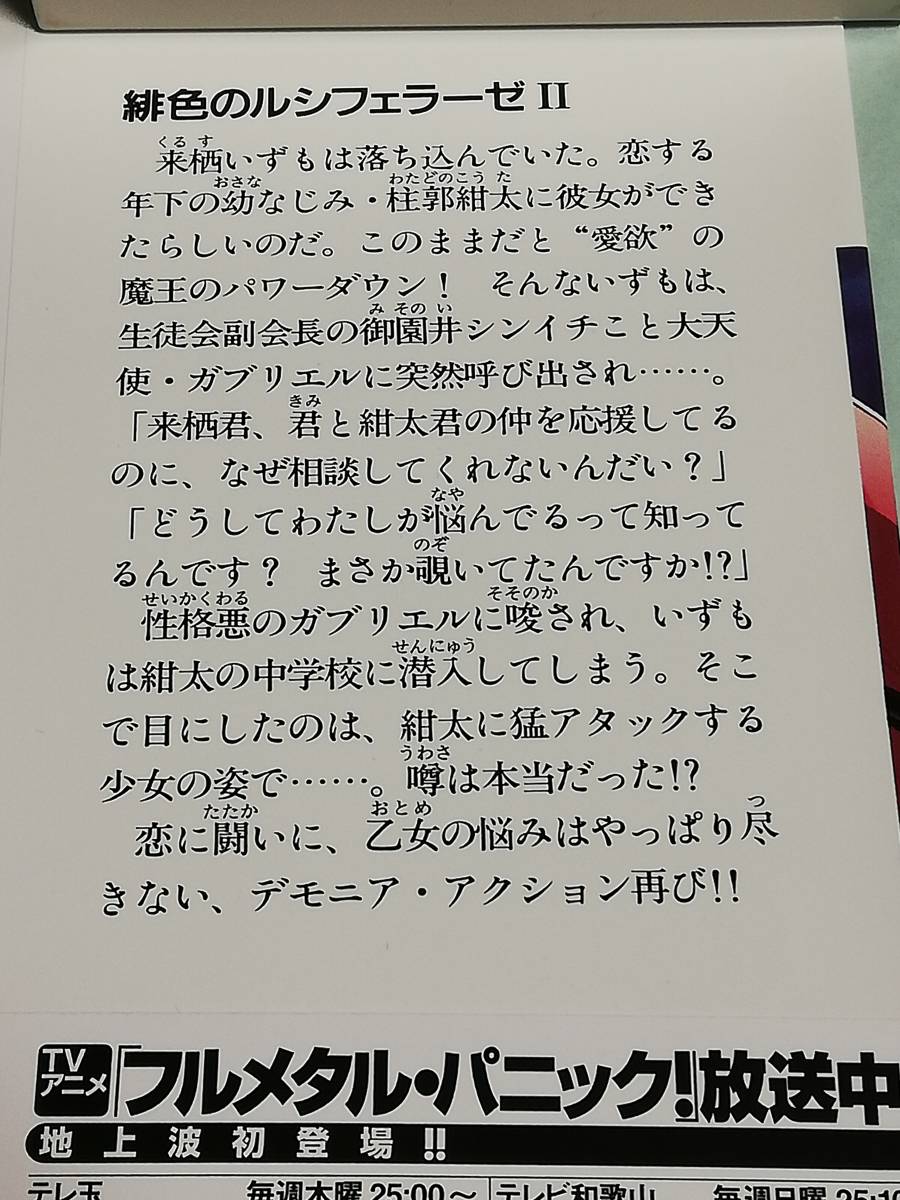 緋色のルシフェラーゼⅡ
くるす
来栖いずもは落ち込んでいた。恋する
おさな わたどのこうた
年下の幼なじみ・柱郭紺太に彼女ができ
たらしいのだ。このままだと“愛欲”の
魔王のパワーダウン！　そんないずもは、
みそのい
生徒会副会長の御園井シンイチこと大天
使・ガブリエルに突然呼び出され……。
きみ
「来栖君、君と紺太君の仲を応援してる
のに、なぜ相談してくれないんだい？」
なや
「どうしてわたしが悩んでるって知って
のぞ
るんです？　まさか覗いてたんですか!?」
せいかくわる そそのか
性格悪のガブリエルに唆され、いずも
せんにゅう
は紺太の中学校に潜入してしまう。そこ
で目にしたのは、紺太に猛アタックする
うわさ
少女の姿で……。噂は本当だった!?
たたか おとめ つ
恋に闘いに、乙女の悩みはやっぱり尽
きない、デモニア・アクション再び!!
TVアニメ「フルメタル・パニック!」放送中
地上波初登場!!
テレ玉 毎週木曜25:00～ テレビ和歌山 毎週日曜25:10